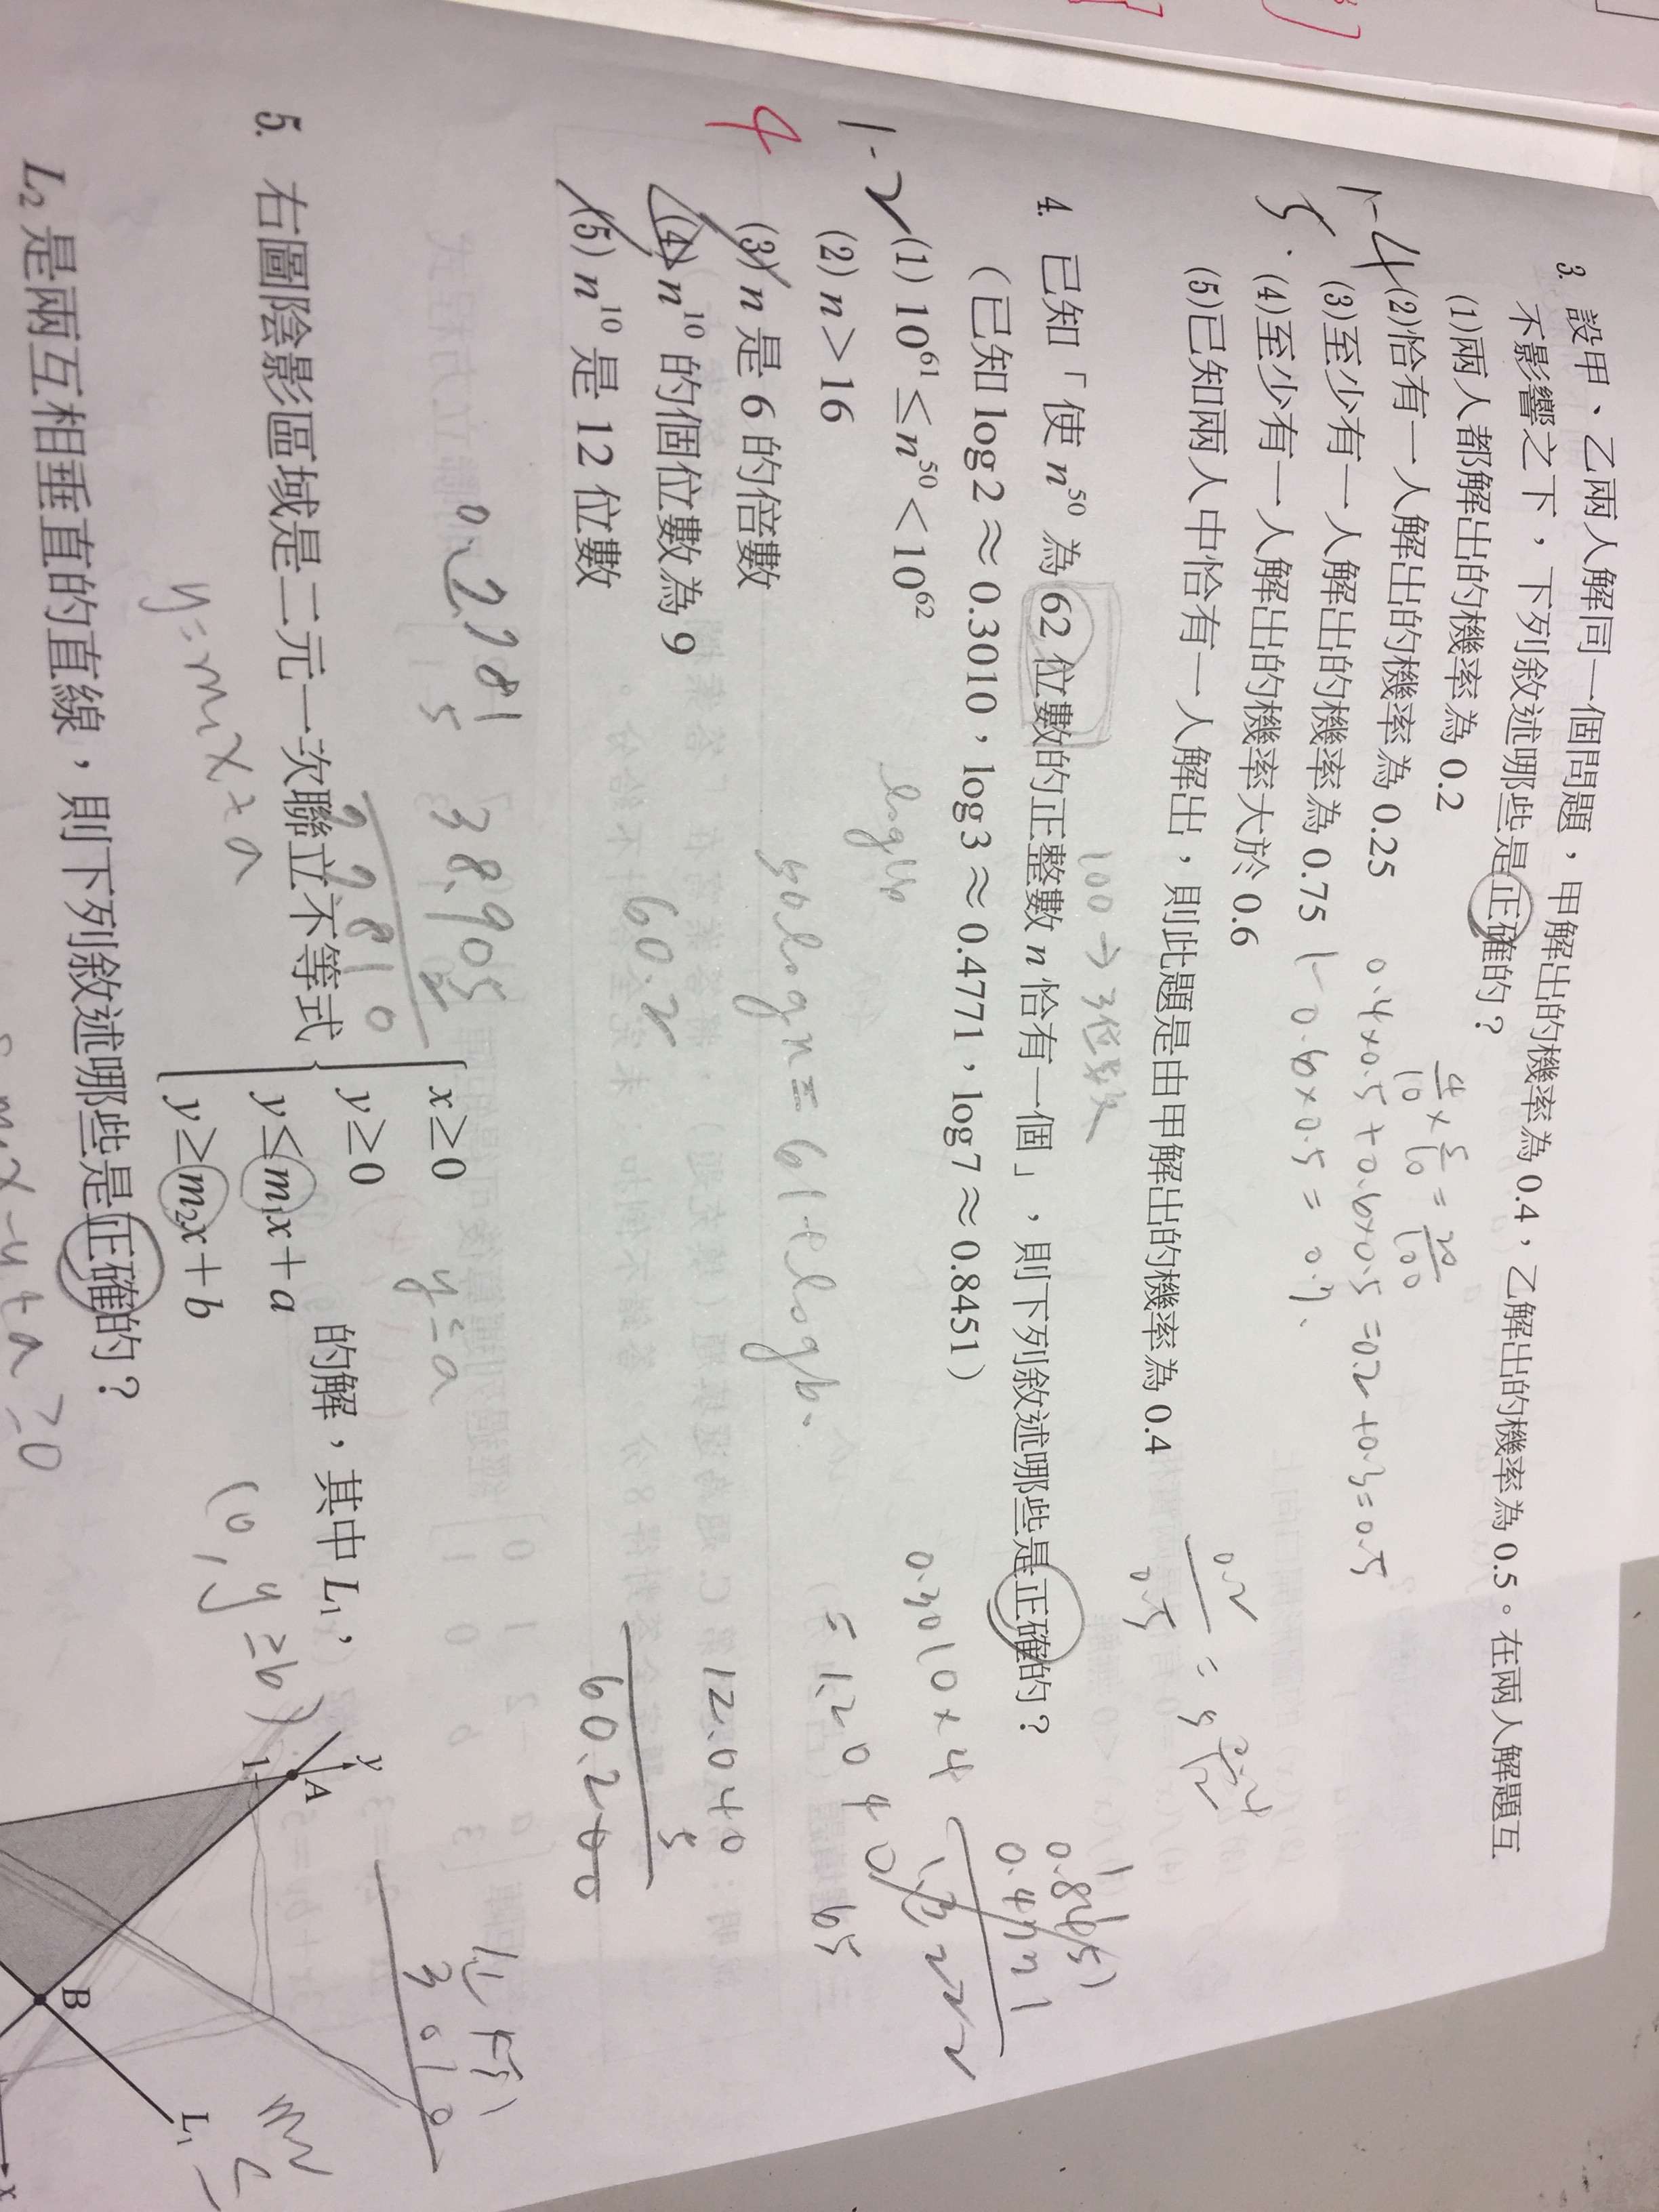 3. 設甲、乙兩人解同一個問題，甲解出的機率為 0.4，乙解出的機率為 0.5。在兩人解題互
不影響之下，下列敘述哪些是正確的？
(1)兩人都解出的機率為 0.2
(2)恰有一人解出的機率為 0.25
(3)至少有一人解出的機率為 0.75
(4)至少有一人解出的機率大於 0.6
(5)已知兩人中恰有一人解出，則此題是由甲解出的機率為 0.4
4/10 × 5/10 = 20/100
0.4×0.5+0.6×0.5=0.2+0.3=0.5
1-0.6×0.5=0.7
0.2/0.5
100→3位數
4. 已知「使 n⁵⁰ 為 62 位數的正整數 n 恰有一個」，則下列敘述哪些是正確的？
（已知 log2≈0.3010，log3≈0.4771，log7≈0.8451）
(1) 10⁶¹ ≤ n⁵⁰ < 10⁶²
(2) n > 16
(3) n 是 6 的倍數
(4) n¹⁰ 的個位數為 9
(5) n¹⁰ 是 12 位數
4
0.8451
0.4771
0.3010×4
=1.2040
50logn=61+logb
12.040
5
60.2
60.200
38.905
5. 右圖陰影區域是二元一次聯立不等式
x≥0
y≥0
y≤m₁x+a
y≥m₂x+b
的解，其中 L₁，
L₂ 是兩互相垂直的直線，則下列敘述哪些是正確的？
y=a
(0,y=b)
y
A
1
B
L₁
x